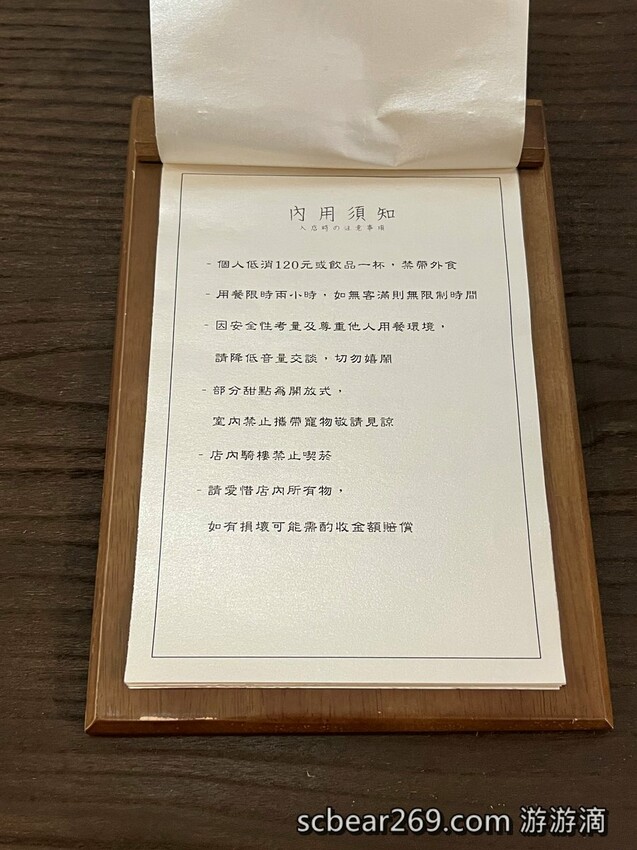 內用須知
入店時の注意事項
- 個人低消120元或飲品一杯，禁帶外食
- 用餐限時兩小時，如無客滿則無限制時間
- 因安全性考量及尊重他人用餐環境，
請降低音量交談，切勿嬉鬧
- 部分甜點為開放式，
室內禁止攜帶寵物敬請見諒
- 店內騎樓禁止喫菸
- 請愛惜店內所有物，
如有損壞可能需酌收金額賠償
scbear269.com 游游滴